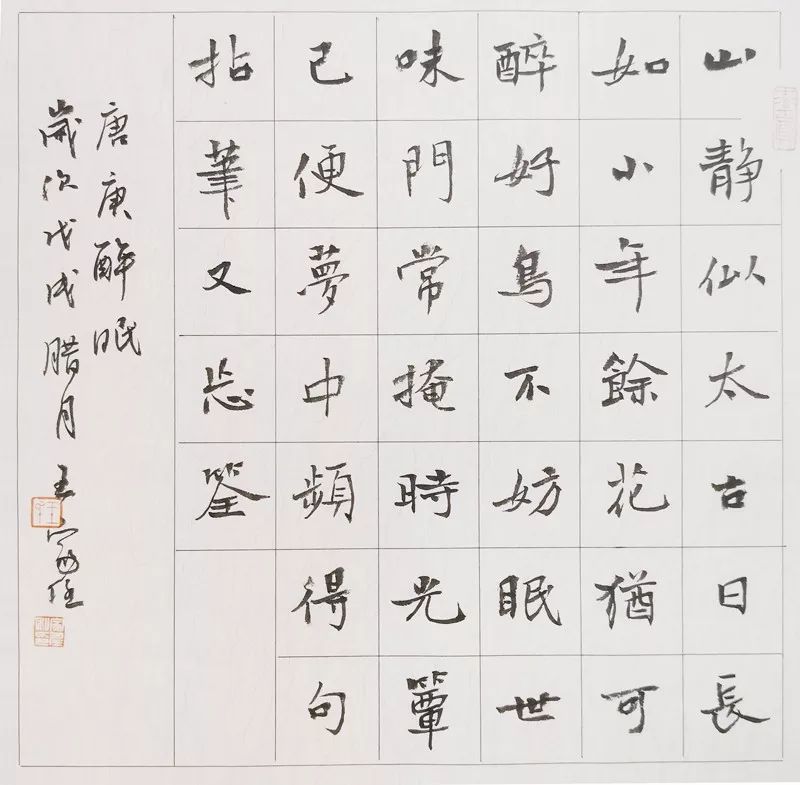 山靜似太古日長
如小年餘花猶可
醉好鳥不妨眠世
味門常掩時光簟
已便夢中頻得句
拈筆又忘筌
唐庚醉眠
歲次戊戌腊月 王